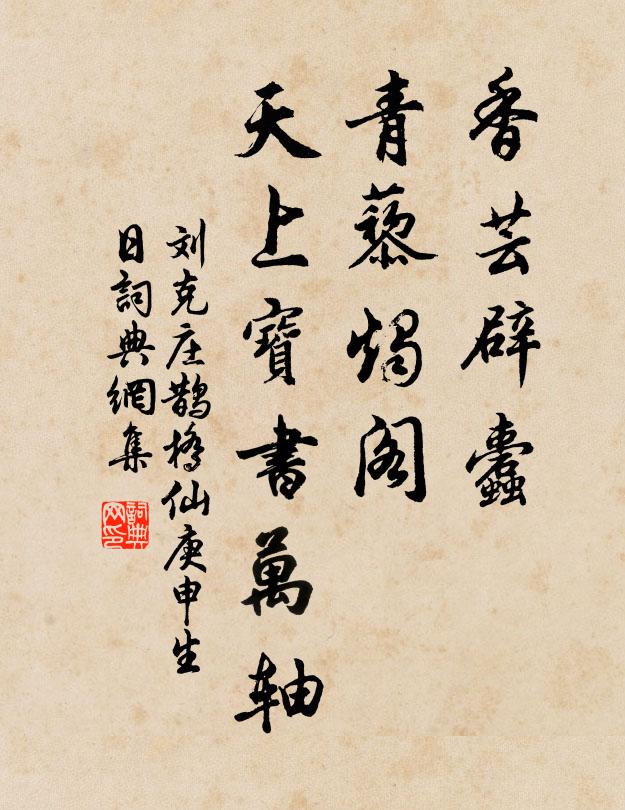 香芸辟蠹
青藜燭阁
天上寶書萬軸
刘克庄鹊橋仙庚申生
日詞典網集
詞典网印